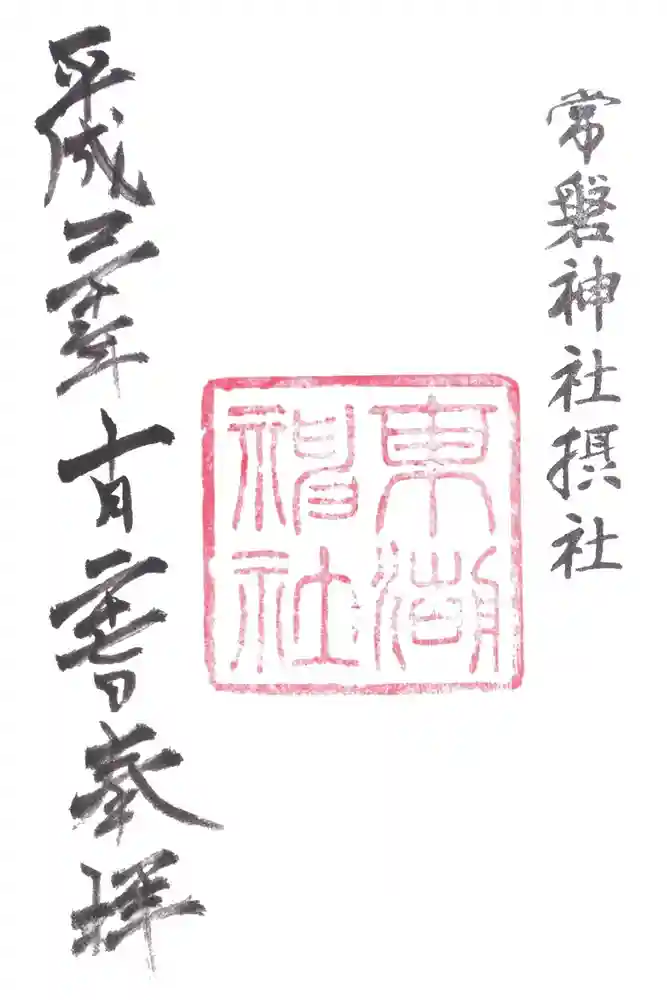 常磐神社摂社
東湖神社
平成三十年十月二十七日奉拝